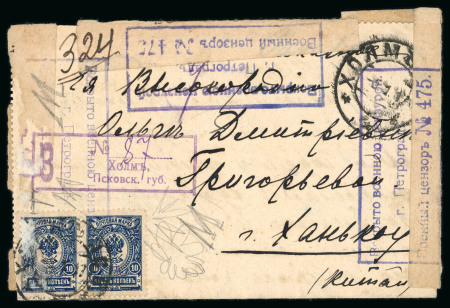 324
Военный цензоръ № 475.
г. Петроградъ.
ХОЛМ
Ея Высокородію
Ольгѣ Дмитріевнѣ
Григорьевой
г. Ханькоу
(Китай)
З
№ 87
Холмъ,
Псковск. губ.
10 10
Вскрыто военною
г. Петроград
Военный цензоръ № 475.